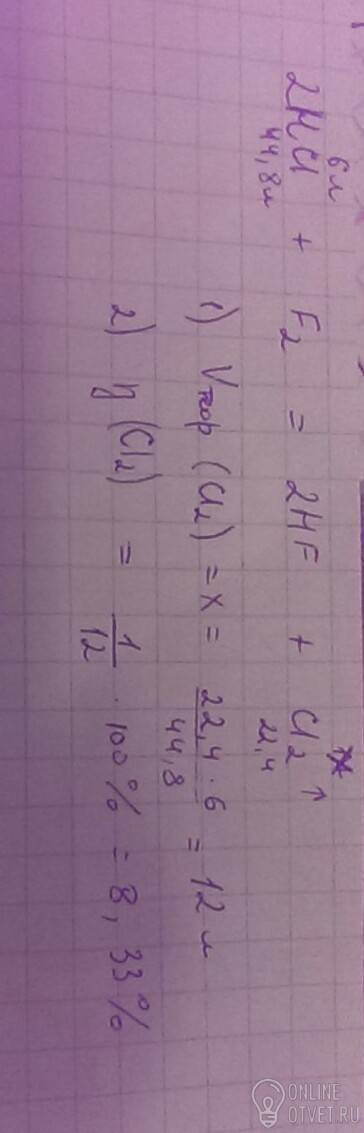 6л x
2HCl + F₂ = 2HF + Cl₂ ↑
44,8л 22,4
1) Vтеор (Cl₂) = x = 22,4 · 6 / 44,8 = 12 л
2) η (Cl₂) = 1/12 · 100% = 8,33%
ONLINE
OTVET.RU